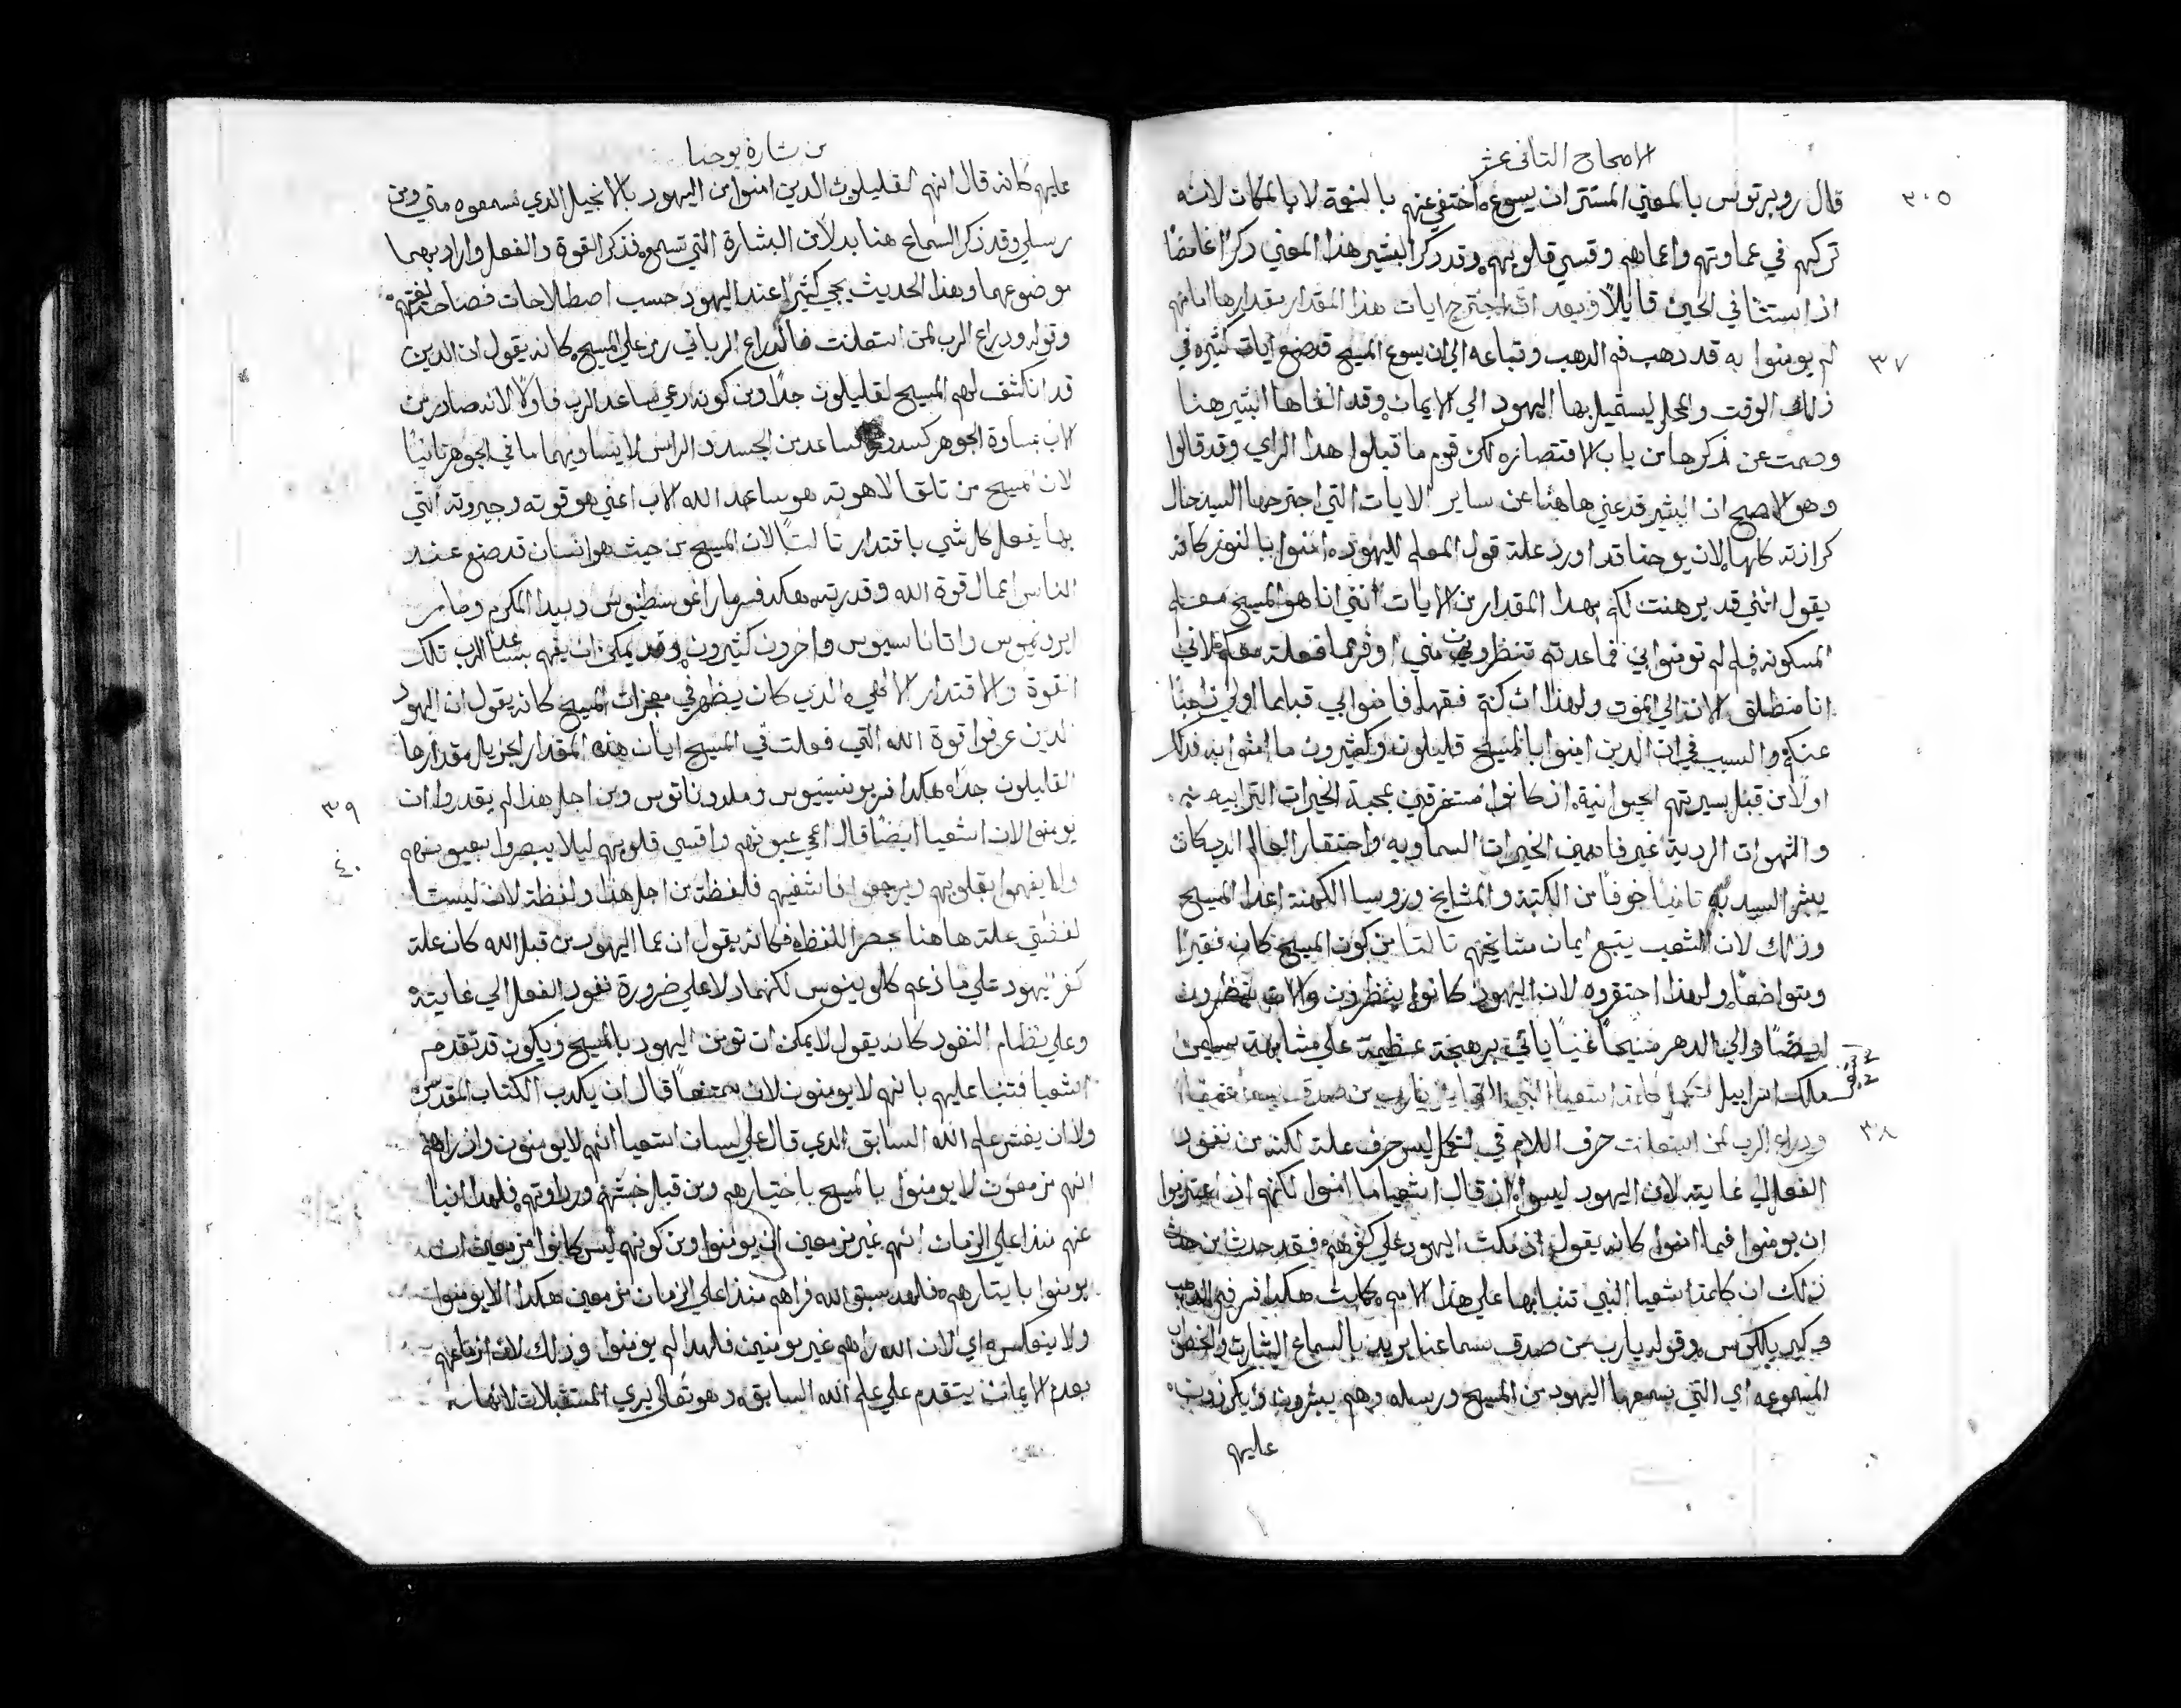 الاصحاح التانى عشر
٣٠٥
قال روبرتوس بالمعني المستتر ان يسوع اختفي عنهم بالنعمة لا بالمكان لانه
تركهم في عماوتهم واعماهم وقسي قلوبهم وقد ذكر البشير هذا المعني ذكرًا غامضًا
اذ استثنا في الحين قايلًا فبعد ان اجترح ايات هذا المقدار مقدارها امامهم
٣٧
لم يومنوا به قد ذهب فم الدهب وتباعه الي ان يسوع المسيح قد صنع ايات كثيره في
ذلك الوقت والمحل ليستميل بها اليهود الي الايمان وقد الغاها البشير هنا
وصمت عن ذكرها من باب الاقتصاره لكن قوم ما قبلوا هدا الراي وقد قالوا
وهو الاصح ان البشير قد عني هاهنا عن ساير الايات التي اجترحها السيد خال
كرازته كلها لان يوحنا قد اورد علة قول المعلم لليهوده امنوا بالنور كانه
يقول انني قد برهنت لكم بهدا المقدار من الايات انني انا هو المسيح معلم
المسكونه فلم لم تومنوا بي فما عدتم تنظرون مني اوفر مما فعلت معكم لاني
انا منطلق الان الي الموت ولهذا ان كنتم فقها فامنوا بي قبلما اولي داهبًا
عنكم والسبب في ان الدين امنوا بالمسيح قليلون وكثيرون ما امنوا به فدلك
اولًا من قبل سيرتهم الحيوانية اذ كانوا مستغرقين بمحبة الخيرات الترابيه
والشهوات الردية غير فاهمين الخيرات السماويه واحتقار العالم الدي كان
يبشر السيد به تانيًا خوفًا من الكتبة والمشايخ وروسا الكهنة اعدا المسيح
وذلك لان الشعب يتبع ايمان مشايخهم تالتًا من كون المسيح كان فقيرًا
ومتواضعًا ولهذا احتقروه لان اليهود كانوا ينتظرون والان ينتظرون
ايضًا والي الدهر مسيحًا غنيًا ياتي ببهجة عظيمة علي مشابهة سليمن
ملك اسراييل لتكمل كلمة اشعيا النبي القايل يارب من صدق سماعنا
٣٨
وذراع الرب لمن استعلنت حرف اللام في لتكمل ليس حرف علة لكنه من نفود
الفعل الي غايته لان اليهود ليسوا لان قال اشعيا ما امنوا لكنهم ان اعتزموا
ان يومنوا فما امنوا كانه يقول اذ مكث اليهود علي كفرهم فقد حدث من حدث
ذلك ان كلمة اشعيا النبي تنبا بها علي هذا الامر كملت هكدا فسر فم الدهب
وكيريللوس وقوله يارب من صدق سماعنا يريد بالسماع البشارة والخطاب
المسموعه اي التي يسمعها اليهود من المسيح ورسله وهم يبشرون ويكرزون
عليهم
من بشارة يوحنا
عليهم كانه قال انهم لقليلون الدين امنوا من اليهود بالانجيل الدي سمعوه مني ومن
رسلي وقد ذكر السماع هنا بدلًا من البشارة التي تسمع فذكر القوة والفعل واراد بهما
موضوعهما وهذا الحديث يجي كثيرًا عند اليهود حسب اصطلاحات فصاحة لغتهم
وقوله ودراع الرب لمن استعلنت فالدراع الرباني رمز علي المسيح كانه يقول ان الدين
قد انكشف لهم المسيح لقليلون جدًا ومن كونه دعي ساعد الرب فاولًا لانه صادر من
الاب بمساوة الجوهر كصدور ساعد من الجسد والراس لا يتساويهما ما في الجوهر تانيًا
لان المسيح من تلقا لاهوته هو ساعد الله الاب اعني هو قوته وجبروته التي
بها يفعل كل شي باقتدار تالتًا لان المسيح من حيث هو انسان قد صنع عند
الناس اعمال قوة الله وقدرته هكدا فسر مار اغوسطينوس وبيدا المكرم ومار
ايرونيموس واتاناسيوس واخرون كثيرون وقد يمكن ان يفهم بساعد الرب تلك
القوة والاقتدار الالهي الدي كان يظهر في معجزات المسيح كانه يقول ان اليهود
الدين عرفوا قوة الله التي فعلت في المسيح ايات هذه المقدار الجزيل مقدارها
٣٩
القليلون جدًا هكدا فسر يونسينيوس وملدوناتوس ومن اجل هذا لم يقدروا ان
يومنوا لان اشعيا ايضًا قال اعمي عيونهم واقسي قلوبهم ليلا يبصروا بعيونهم
٤٠
ولا يفهموا بقلوبهم ويرجعوا فاشفيهم فلفظة من اجل هذا ولفظة لان ليستا
لفظتي علة هاهنا بحصر اللفظه فكانه يقول ان عما اليهود من قبل الله كان علة
كفر اليهود علي ما زعم كلوينوس لكنهما دلا علي ضرورة نفود الفعل الي غايته
وعلي نظام النفود كانه يقول لا يمكن ان تومن اليهود بالمسيح ويكون قد تقدم
اشعيا فتنبا عليهم بانهم لا يومنون لان ممتنعًا قال ان يكدب الكتاب المقدس
ولا ان يغش علم الله السابق الدي قال علي لسان اشعيا انهم لا يومنون واذ راهم
انهم مزمعون لا يومنوا بالمسيح باختيارهم ومن قبل خبثهم ورداوتهم فلهدا انبا
عنهم منذ اعلي الزمان انهم غير مزمعين ان يومنوا ومن كونهم ليس كانوا مزمعين ان
يومنوا بايتارهم فلهد سبق الله فراهم منذ اعلي الزمان مزمعين هكدا الا يومنوا
ولا ينعكس اي لان الله راهم غير مومنين فلهدا لم يومنوا وذلك لان ازماعهم
بعدم الايمان يتقدم علي علم الله السابق وهو تعالي يري المستقبلات لانها